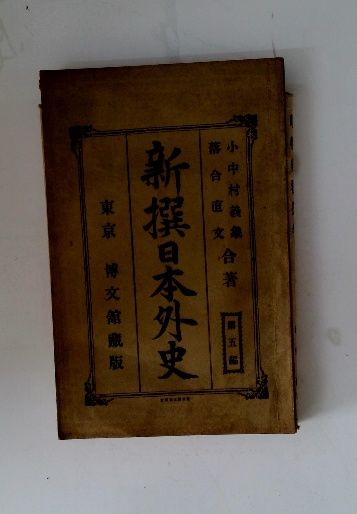 小中村義象
落合直文
合著
第五編
新撰日本外史
東京 博文館蔵版